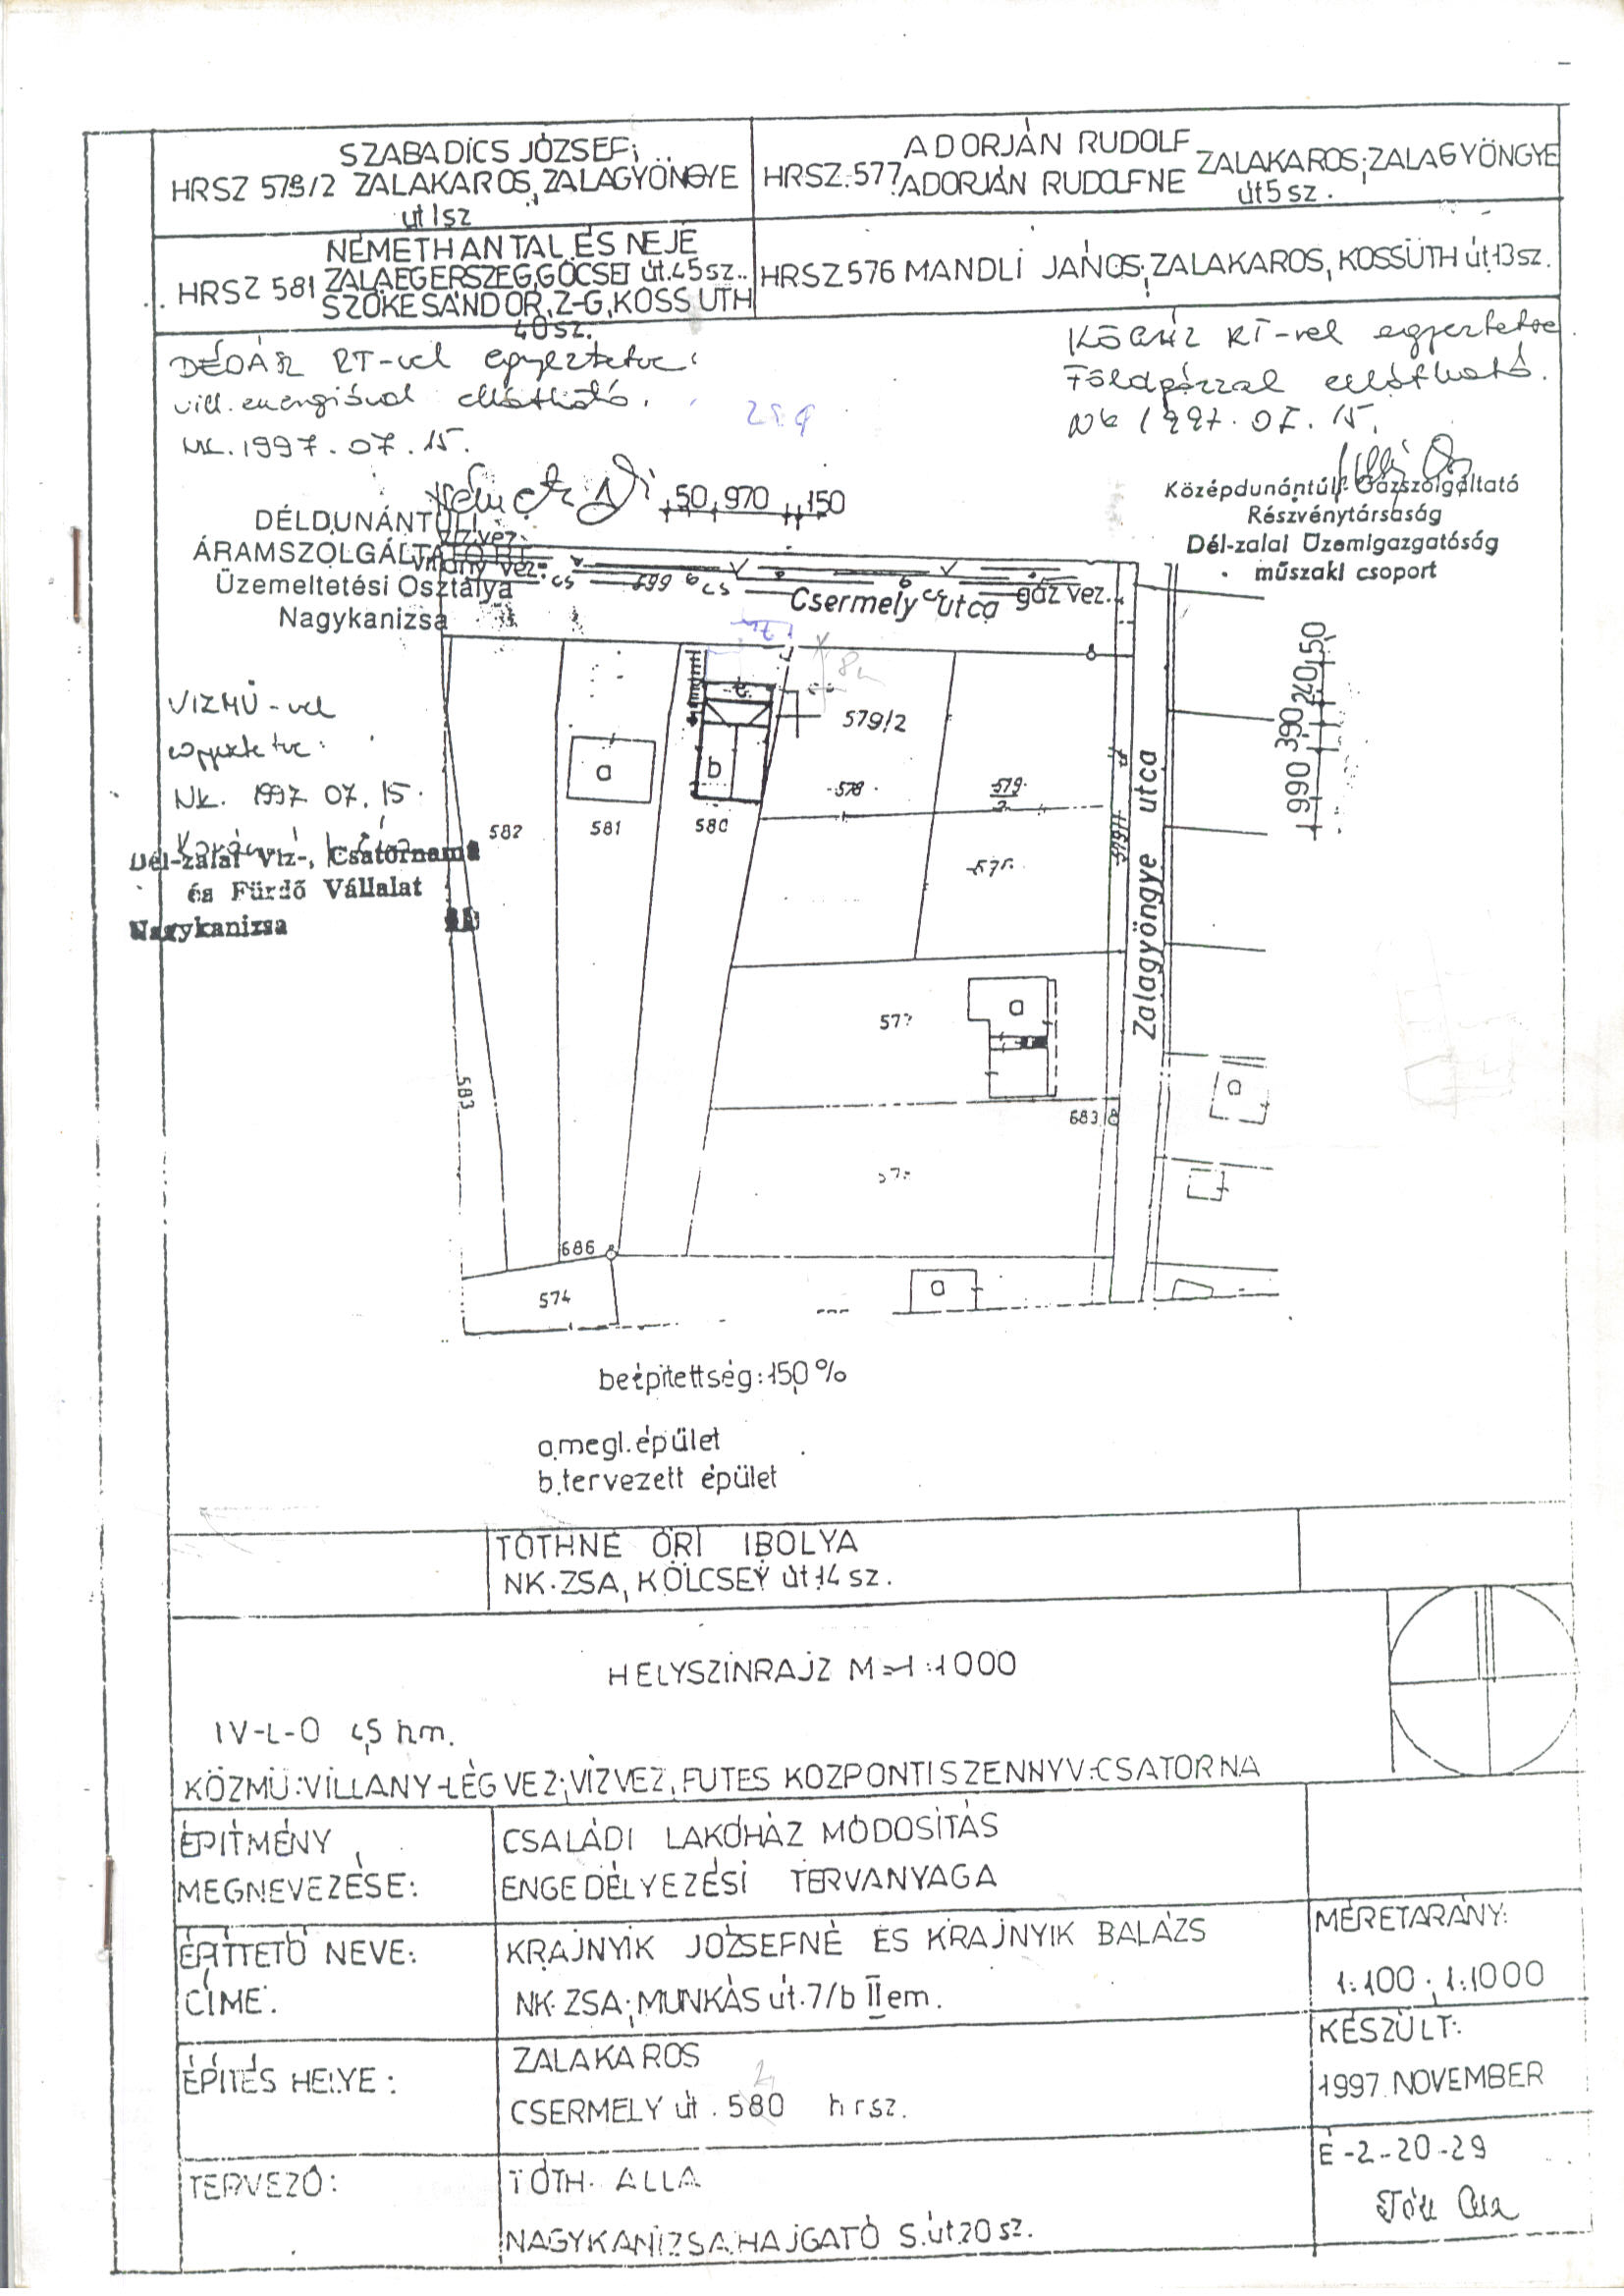 SZABADICS JÓZSEF;
HRSZ 579/2 ZALAKAROS, ZALAGYÖNGYE
út 1sz
HRSZ.577 ADORJÁN RUDOLF
ADORJÁN RUDOLFNE
ZALAKAROS; ZALAGYÖNGYE
út 5 sz.
NÉMETH ANTAL ÉS NEJE
HRSZ 581 ZALAEGERSZEG, GÖCSEJ út.45sz..
SZŐKE SÁNDOR, Z-G, KOSSUTH
40sz.
HRSZ 576 MANDLI JÁNOS; ZALAKAROS, KOSSUTH út 13sz.
DÉDÁSZ RT-vel egyeztetve:
vill. energiával ellátható.
NK. 1997. 07. 15.
KÖGÁZ RT-vel egyeztetve
Földgázzal ellátható.
NK 1997. 07. 15.
50 970 150
DÉLDUNÁNTÚLI
ÁRAMSZOLGÁLTATÓ RT.
Üzemeltetési Osztálya
Nagykanizsa
Középdunántúli Gázszolgáltató
Részvénytársaság
Dél-zalai Üzemigazgatóság
műszaki csoport
víz vez.
villany vez.
cs
599
cs
cs
gáz vez.
Csermely utca
7m
8m
VIZMŰ-vel
egyeztetve:
NK. 1997. 07. 15.
Dél-zalai Víz-, Csatornamű
és Fürdő Vállalat
Nagykanizsa
579/2
a
b
578
579
2
582
581
580
575
579/1
Zalagyöngye utca
990 390 240 150
577
a
583
683/8
a
57
686
574
a
beépítettség: 15,0 %
a. megl. épület
b. tervezett épület
TÓTHNÉ ŐRI IBOLYA
NK-ZSA, KÖLCSEY út 14 sz.
HELYSZÍNRAJZ M=1:1000
IV-L-O 4,5 hm.
KÖZMŰ: VILLANY-LÉGVEZ; VÍZVEZ, FŰTÉS KÖZPONTI SZENNYV-CSATORNA
ÉPÍTMÉNY
MEGNEVEZÉSE:
CSALÁDI LAKÓHÁZ MÓDOSÍTÁS
ENGEDÉLYEZÉSI TERVANYAGA
ÉPÍTTETŐ NEVE:
CÍME:
KRAJNYIK JÓZSEFNÉ ÉS KRAJNYIK BALÁZS
NK-ZSA; MUNKÁS út.7/b II em.
MÉRETARÁNY:
1:100; 1:1000
ÉPÍTÉS HELYE:
ZALAKAROS
CSERMELY út. 580 hrsz.
2
KÉSZÜLT:
1997. NOVEMBER
TERVEZŐ:
TÓTH ALLA
NAGYKANIZSA, HAJGATÓ S. út 20 sz.
É-2-20-29
Tóth Alla